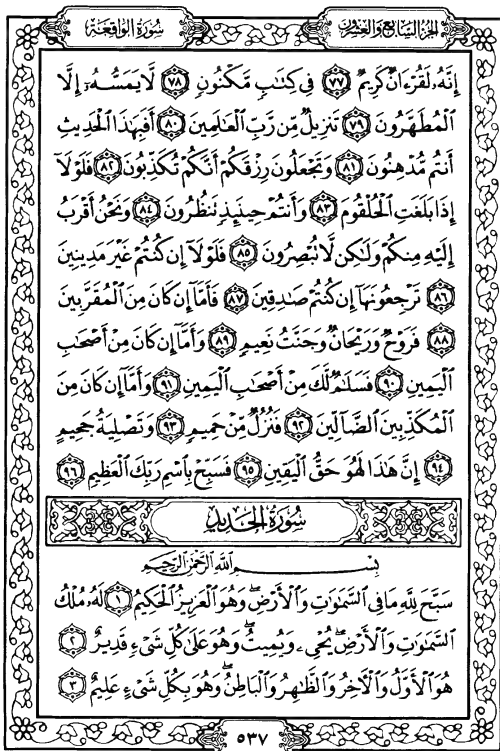 الجزء السابع والعشرون سورة الواقعة
إِنَّهُۥ لَقُرْءَانٌ كَرِيمٌ ٧٧ فِي كِتَٰبٍ مَّكْنُونٍ ٧٨ لَّا يَمَسُّهُۥٓ إِلَّا
ٱلْمُطَهَّرُونَ ٧٩ تَنزِيلٌ مِّن رَّبِّ ٱلْعَٰلَمِينَ ٨٠ أَفَبِهَٰذَا ٱلْحَدِيثِ
أَنتُم مُّدْهِنُونَ ٨١ وَتَجْعَلُونَ رِزْقَكُمْ أَنَّكُمْ تُكَذِّبُونَ ٨٢ فَلَوْلَآ
إِذَا بَلَغَتِ ٱلْحُلْقُومَ ٨٣ وَأَنتُمْ حِينَئِذٍ تَنظُرُونَ ٨٤ وَنَحْنُ أَقْرَبُ
إِلَيْهِ مِنكُمْ وَلَٰكِن لَّا تُبْصِرُونَ ٨٥ فَلَوْلَآ إِن كُنتُمْ غَيْرَ مَدِينِينَ
٨٦ تَرْجِعُونَهَآ إِن كُنتُمْ صَٰدِقِينَ ٨٧ فَأَمَّآ إِن كَانَ مِنَ ٱلْمُقَرَّبِينَ
٨٨ فَرَوْحٌ وَرَيْحَانٌ وَجَنَّتُ نَعِيمٍ ٨٩ وَأَمَّآ إِن كَانَ مِنْ أَصْحَٰبِ
ٱلْيَمِينِ ٩٠ فَسَلَٰمٌ لَّكَ مِنْ أَصْحَٰبِ ٱلْيَمِينِ ٩١ وَأَمَّآ إِن كَانَ مِنَ
ٱلْمُكَذِّبِينَ ٱلضَّآلِّينَ ٩٢ فَنُزُلٌ مِّنْ حَمِيمٍ ٩٣ وَتَصْلِيَةُ جَحِيمٍ
٩٤ إِنَّ هَٰذَا لَهُوَ حَقُّ ٱلْيَقِينِ ٩٥ فَسَبِّحْ بِٱسْمِ رَبِّكَ ٱلْعَظِيمِ ٩٦
سورة الحديد
بِسْمِ ٱللَّهِ ٱلرَّحْمَٰنِ ٱلرَّحِيمِ
سَبَّحَ لِلَّهِ مَا فِي ٱلسَّمَٰوَٰتِ وَٱلْأَرْضِۖ وَهُوَ ٱلْعَزِيزُ ٱلْحَكِيمُ ١ لَهُۥ مُلْكُ
ٱلسَّمَٰوَٰتِ وَٱلْأَرْضِۖ يُحْيِۦ وَيُمِيتُۖ وَهُوَ عَلَىٰ كُلِّ شَيْءٍ قَدِيرٌ ٢
هُوَ ٱلْأَوَّلُ وَٱلْءَاخِرُ وَٱلظَّٰهِرُ وَٱلْبَاطِنُۖ وَهُوَ بِكُلِّ شَيْءٍ عَلِيمٌ ٣
٥٣٧